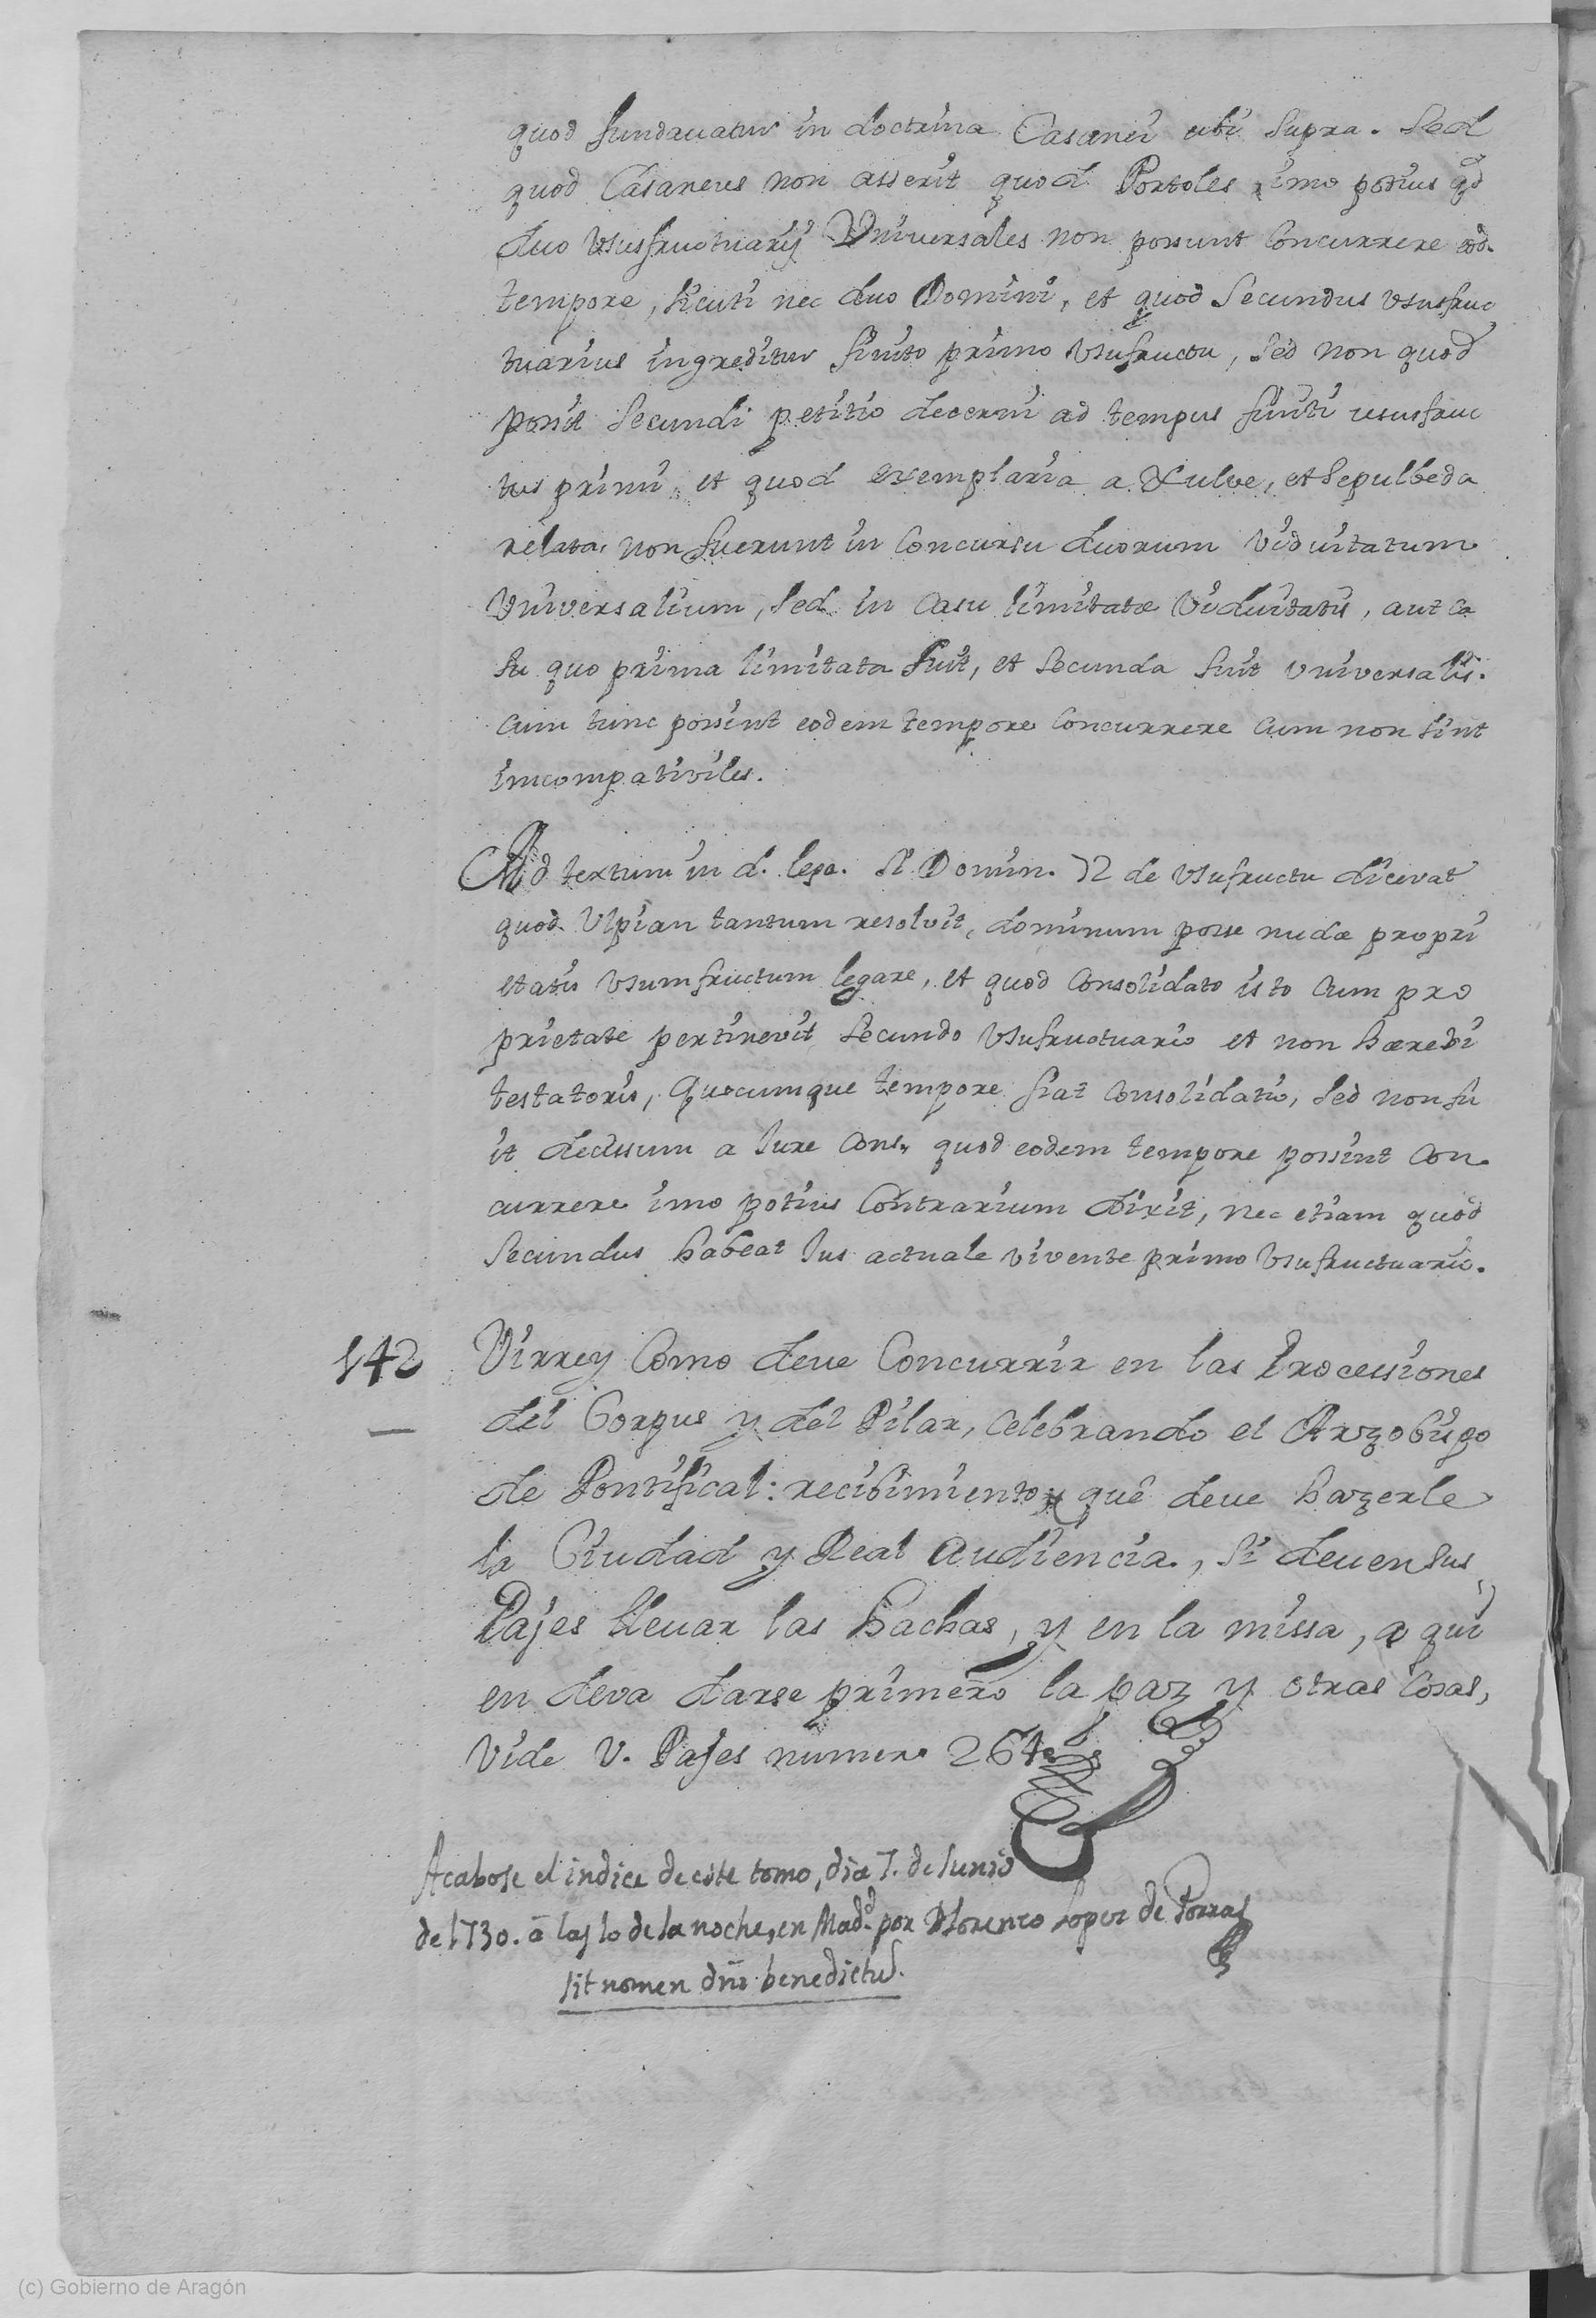 quod fundavatur in doctrina Casanei ubi supra. Sed
quod Casaneus non asserit quod Portoles imo potius qd
duo Ususfructuarij Universales non possunt Concurrere eod.
tempore, sicuti nec duo Domini, et quod Secundus ususfruc
tuarius ingreditur finito primo Usufructu, sed non quod
possit Secundi petitio decerni ad tempus finiti ususfruc
tus primi, et quod exemplaria a Xulve, et Sepulbeda
relata, non fuerunt in Concursu duorum Viduitatum
Universalium, sed in Casu limitatæ Viduitatis, aut ca
su quo prima limitata fuit, et Secunda fuit universalis.
Cum tunc possint eodem tempore Concurrere Cum non sint
imcompativiles.
Ad textum in d. lege. Si Domin. 72 de Usufructu dicevat
quod Ulpian tantum resolvit, dominum posse nudæ propri
etatis Usumfructum legare, et quod Consolidato isto Cum pro
prietate pertinevit Secundo Usufructuario et non hæredi
testatoris, quocumque tempore fiat Consolidatio, sed non fu
it decissum a Jure Cons. quod eodem tempore possint Con
currere imo potius Contrarium dixit, nec etiam quod
Secundus habeat Jus actuale vivente primo Usufructuario.
142 Virrey Como deve Concurrir en las Processiones
del Corpus y del Pilar, Celebrando el Arzobispo
de Pontifical: recibimiento que deve hazerle
la Ciudad y Real Audiencia, si deven sus
Pajes llevar las hachas, y en la missa, a qui
en deva darse primero la paz y otras Cosas,
Vide V. Pajes numero 264
Acabose el indice de este tomo, dia 7. de Junio
de 1730. â las 10 de la noche, en Madd. por D Lorenzo Lopez de Porras
sit nomen dñi benedictus.
(c) Gobierno de Aragón